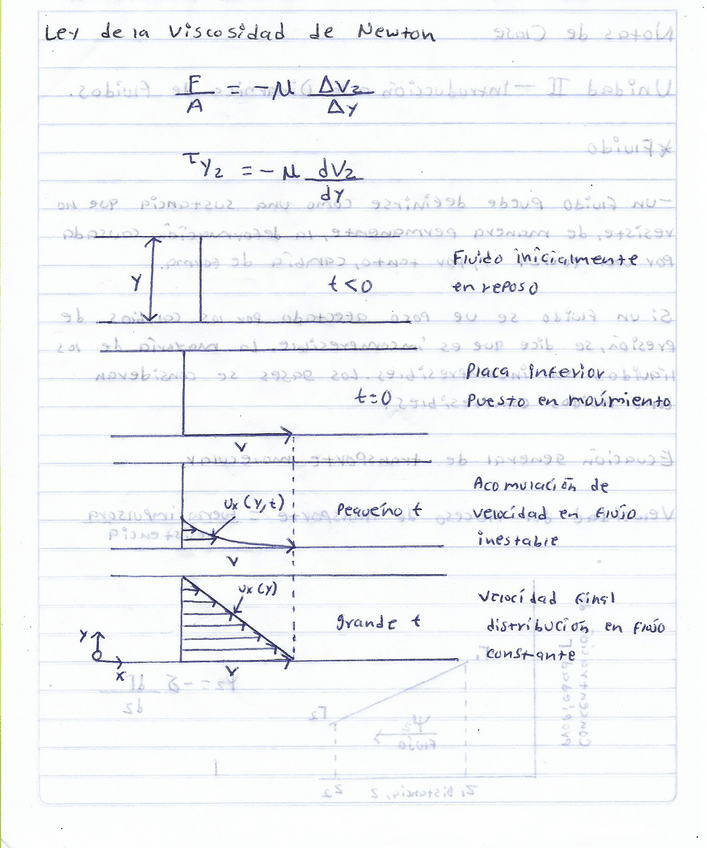 Ley de la Viscosidad de Newton
F/A = -μ ΔVz/Δy
τyz = -μ dVz/dy
Y
t<0
Fluido inicialmente
en reposo
t=0
Placa inferior
Puesto en movimiento
V
υx(y,t)
Pequeño t
Acomulación de
velocidad en flujo
inestable
V
υx(y)
grande t
Velocidad final
distribución en flujo
constante
Y
X
V